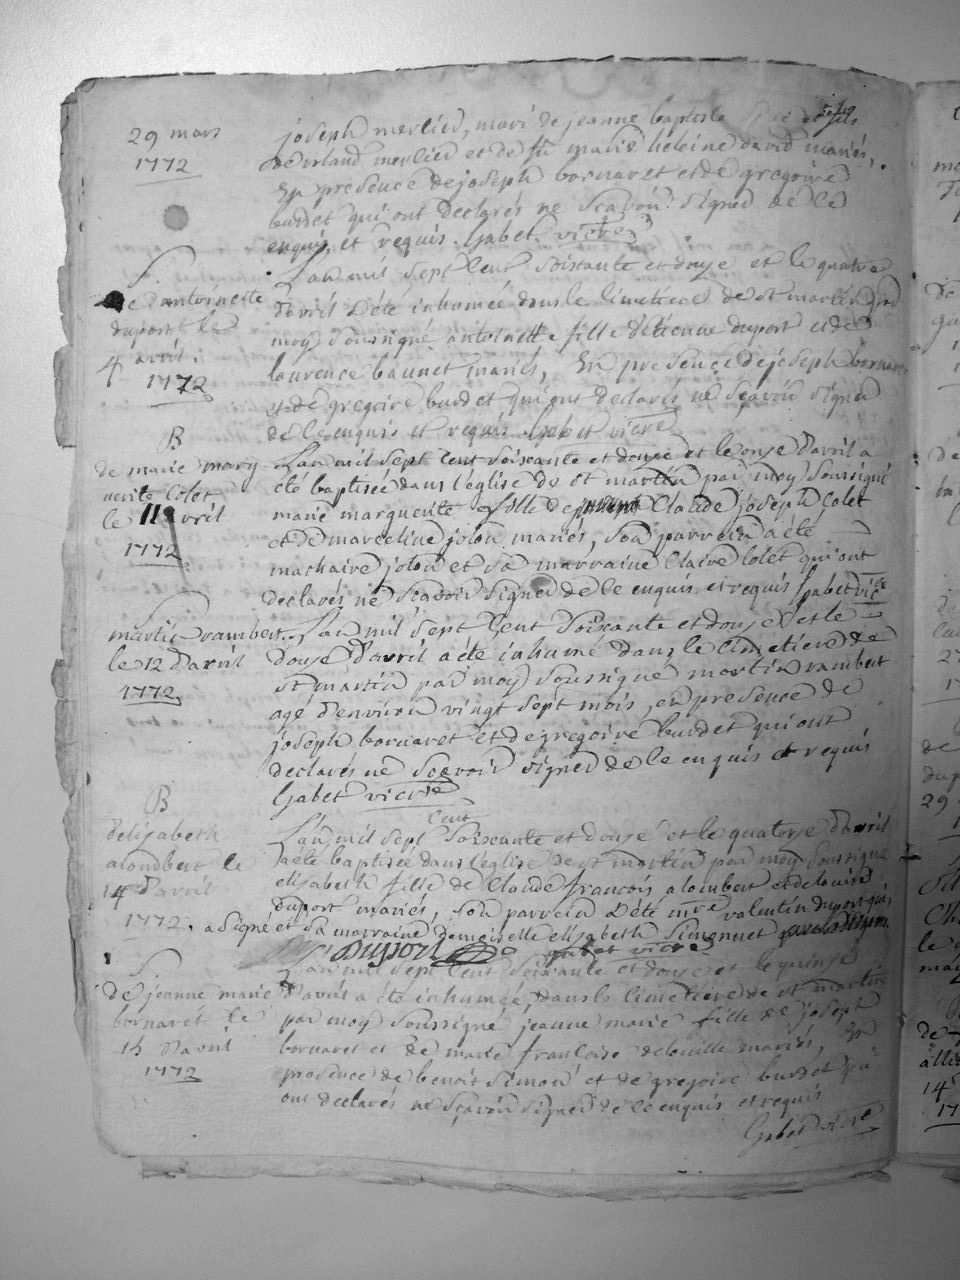 29 mars
1772
joseph merlier, mari de jeanne baptiste fils
merlier et de marie heleine david mariés,
En presence de joseph bornaret et de gregoire
burdet qui ont declarés ne sçavoir signer de ce
enquis et requis. Gabet vicre
S.
de antoinette
duport le
4 avril.
1772
L'an mil sept cent soixante et douze et le quatre
d'avril a été inhumée dans le cimetiere de st martin par
moy soussigné antoinette fille d'etienne duport et de
laurence baunet mariés, En presence de joseph bornaret
et de gregoire burdet qui ont declarés ne sçavoir signer
de ce enquis et requis Gabet vicre
B
de marie marg
uerite Colet
le 11 avril
1772
L'an mil sept cent soixante et douze et le onze d'avril a
été baptisée dans l'église de st martin par moy soussigné
marie marguerite fille de Claude joseph Colet
et de marceline jolon mariés, son parrein a été
machaire jolon et sa marraine Claire Colet qui ont
declarés ne sçavoir signer de ce enquis et requis Gabet vicre
S
martin rambert
le 12 d'avril
1772
L'an mil sept cent soixante et douze et le
douze d'avril a été inhumé dans le cimetiere de
st martin par moy soussigné martin rambert
agé d'environ vingt sept mois, en presence de
joseph bornaret et de gregoire burdet qui ont
declarés ne sçavoir signer de ce enquis et requis
Gabet vicre
B
d'elisabeth
alombert le
14 d'avril
1772.
cent
L'an mil sept soixante et douze et le quatorze d'avril
a été baptisée dans l'eglise de st martin par moy soussigné
elisabeth fille de Claude françois alombert et de louise
duport mariés, son parrein a été mre valentin duport qui
a signé et sa marraine demoiselle elisabeth Simonnet
Duport Gabet vicre
S
de jeanne marie
bornaret le
15 d'avril
1772
L'an mil sept cent soixante et douze et le quinze
d'avril a été inhumée, dans le cimetiere de st martin
par moy soussigné jeanne marie fille de joseph
bornaret et de marie françoise mariés, En
presence de benoit Simon et de gregoire burdet qui
ont declarés ne sçavoir signer de ce enquis et requis
Gabet vicre